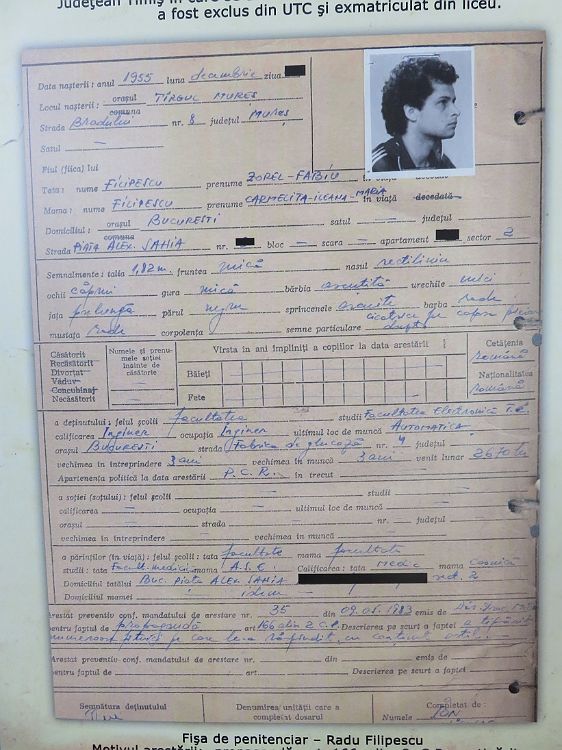 Judeţean Timiş în care se
a fost exclus din UTC şi exmatriculat din liceu.
Data naşterii: anul 1955 luna decembrie ziua
Locul naşterii: oraşul TÎRGUL MUREŞ
comuna
Strada Bradului nr. 8 judeţul Mureş
Satul —
Fiul (fiica) lui
Tata: nume FILIPESCU prenume ZOREL-FABIU în viaţă decedat
Mama: nume FILIPESCU prenume CARMELITA-ILEANA-MARIA în viaţă decedată
Domiciliu: oraşul BUCUREŞTI satul — judeţul
comuna
Strada PIAŢA ALEX. SAHIA nr. bloc — scara — apartament sector 2
Semnalmente: talia 1,82 m. fruntea mică nasul rectiliniu
ochii căprui gura mică bărbia ascuţită urechile mici
faţa prelungă părul negru sprincenele arcuite barba rade
mustaţa rade corpolenţa semne particulare cicatrice pe coapsa
dreaptă
Căsătorit
Recăsătorit
Divorţat
Văduv
Concubinaj
Necăsătorit
Numele şi prenumele soţiei înainte de căsătorie
Vîrsta în ani împliniţi a copiilor la data arestării
Băieţi
Fete
Cetăţenia
română
Naţionalitatea
română
a deţinutului: felul şcolii facultatea studii Facultatea Electronică
calificarea Inginer ocupaţia Inginer ultimul loc de muncă AUTOMATICA
oraşul BUCUREŞTI strada Fabrica de glucoză nr. 4 judeţul
vechimea în întreprindere 3 ani vechimea în muncă 3 ani venit lunar 2670 lei
Apartenenţa politică la data arestării P.C.R. în trecut —
a soţiei (soţului): felul şcolii — studii —
calificarea — ocupaţia — ultimul loc de muncă —
oraşul — strada — nr. — judeţul
vechimea în întreprindere — vechimea în muncă —
a părinţilor (în viaţă): felul şcolii: tata facultate mama facultate
studii: tata Facult. medicină mama A.S.E. Calificarea: tata medic mama casnică
Domiciliul tatălui Buc. Piaţa ALEX. SAHIA sect. 2
Domiciliul mamei idem
Arestat preventiv conf. mandatului de arestare nr. 35 din 09.05.1983 emis de
pentru faptul de propagandă art 166 alin 2 C.P. Descrierea pe scurt a faptei a tipărit
pe care le-a răspîndit, cu conţinut ostil
Arestat preventiv conf. mandatului de arestare nr. din emis de
pentru faptul de art. Descrierea pe scurt a faptei
Semnătura deţinutului
Denumirea unităţii care a completat dosarul
Completat de:
Numele ION
Fişa de penitenciar – Radu Filipescu